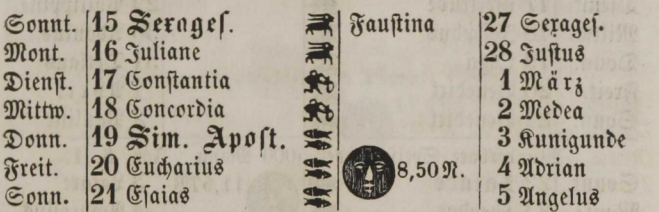 Sonnt. 15 Sexages. Faustina 27 Sexages.
Mont. 16 Juliane 28 Justus
Dienst. 17 Constantia 1 März
Mittw. 18 Concordia 2 Medea
Donn. 19 Sim. Apost. 3 Kunigunde
Freit. 20 Eucharius 8,50 N. 4 Adrian
Sonn. 21 Esaias 5 Angelus